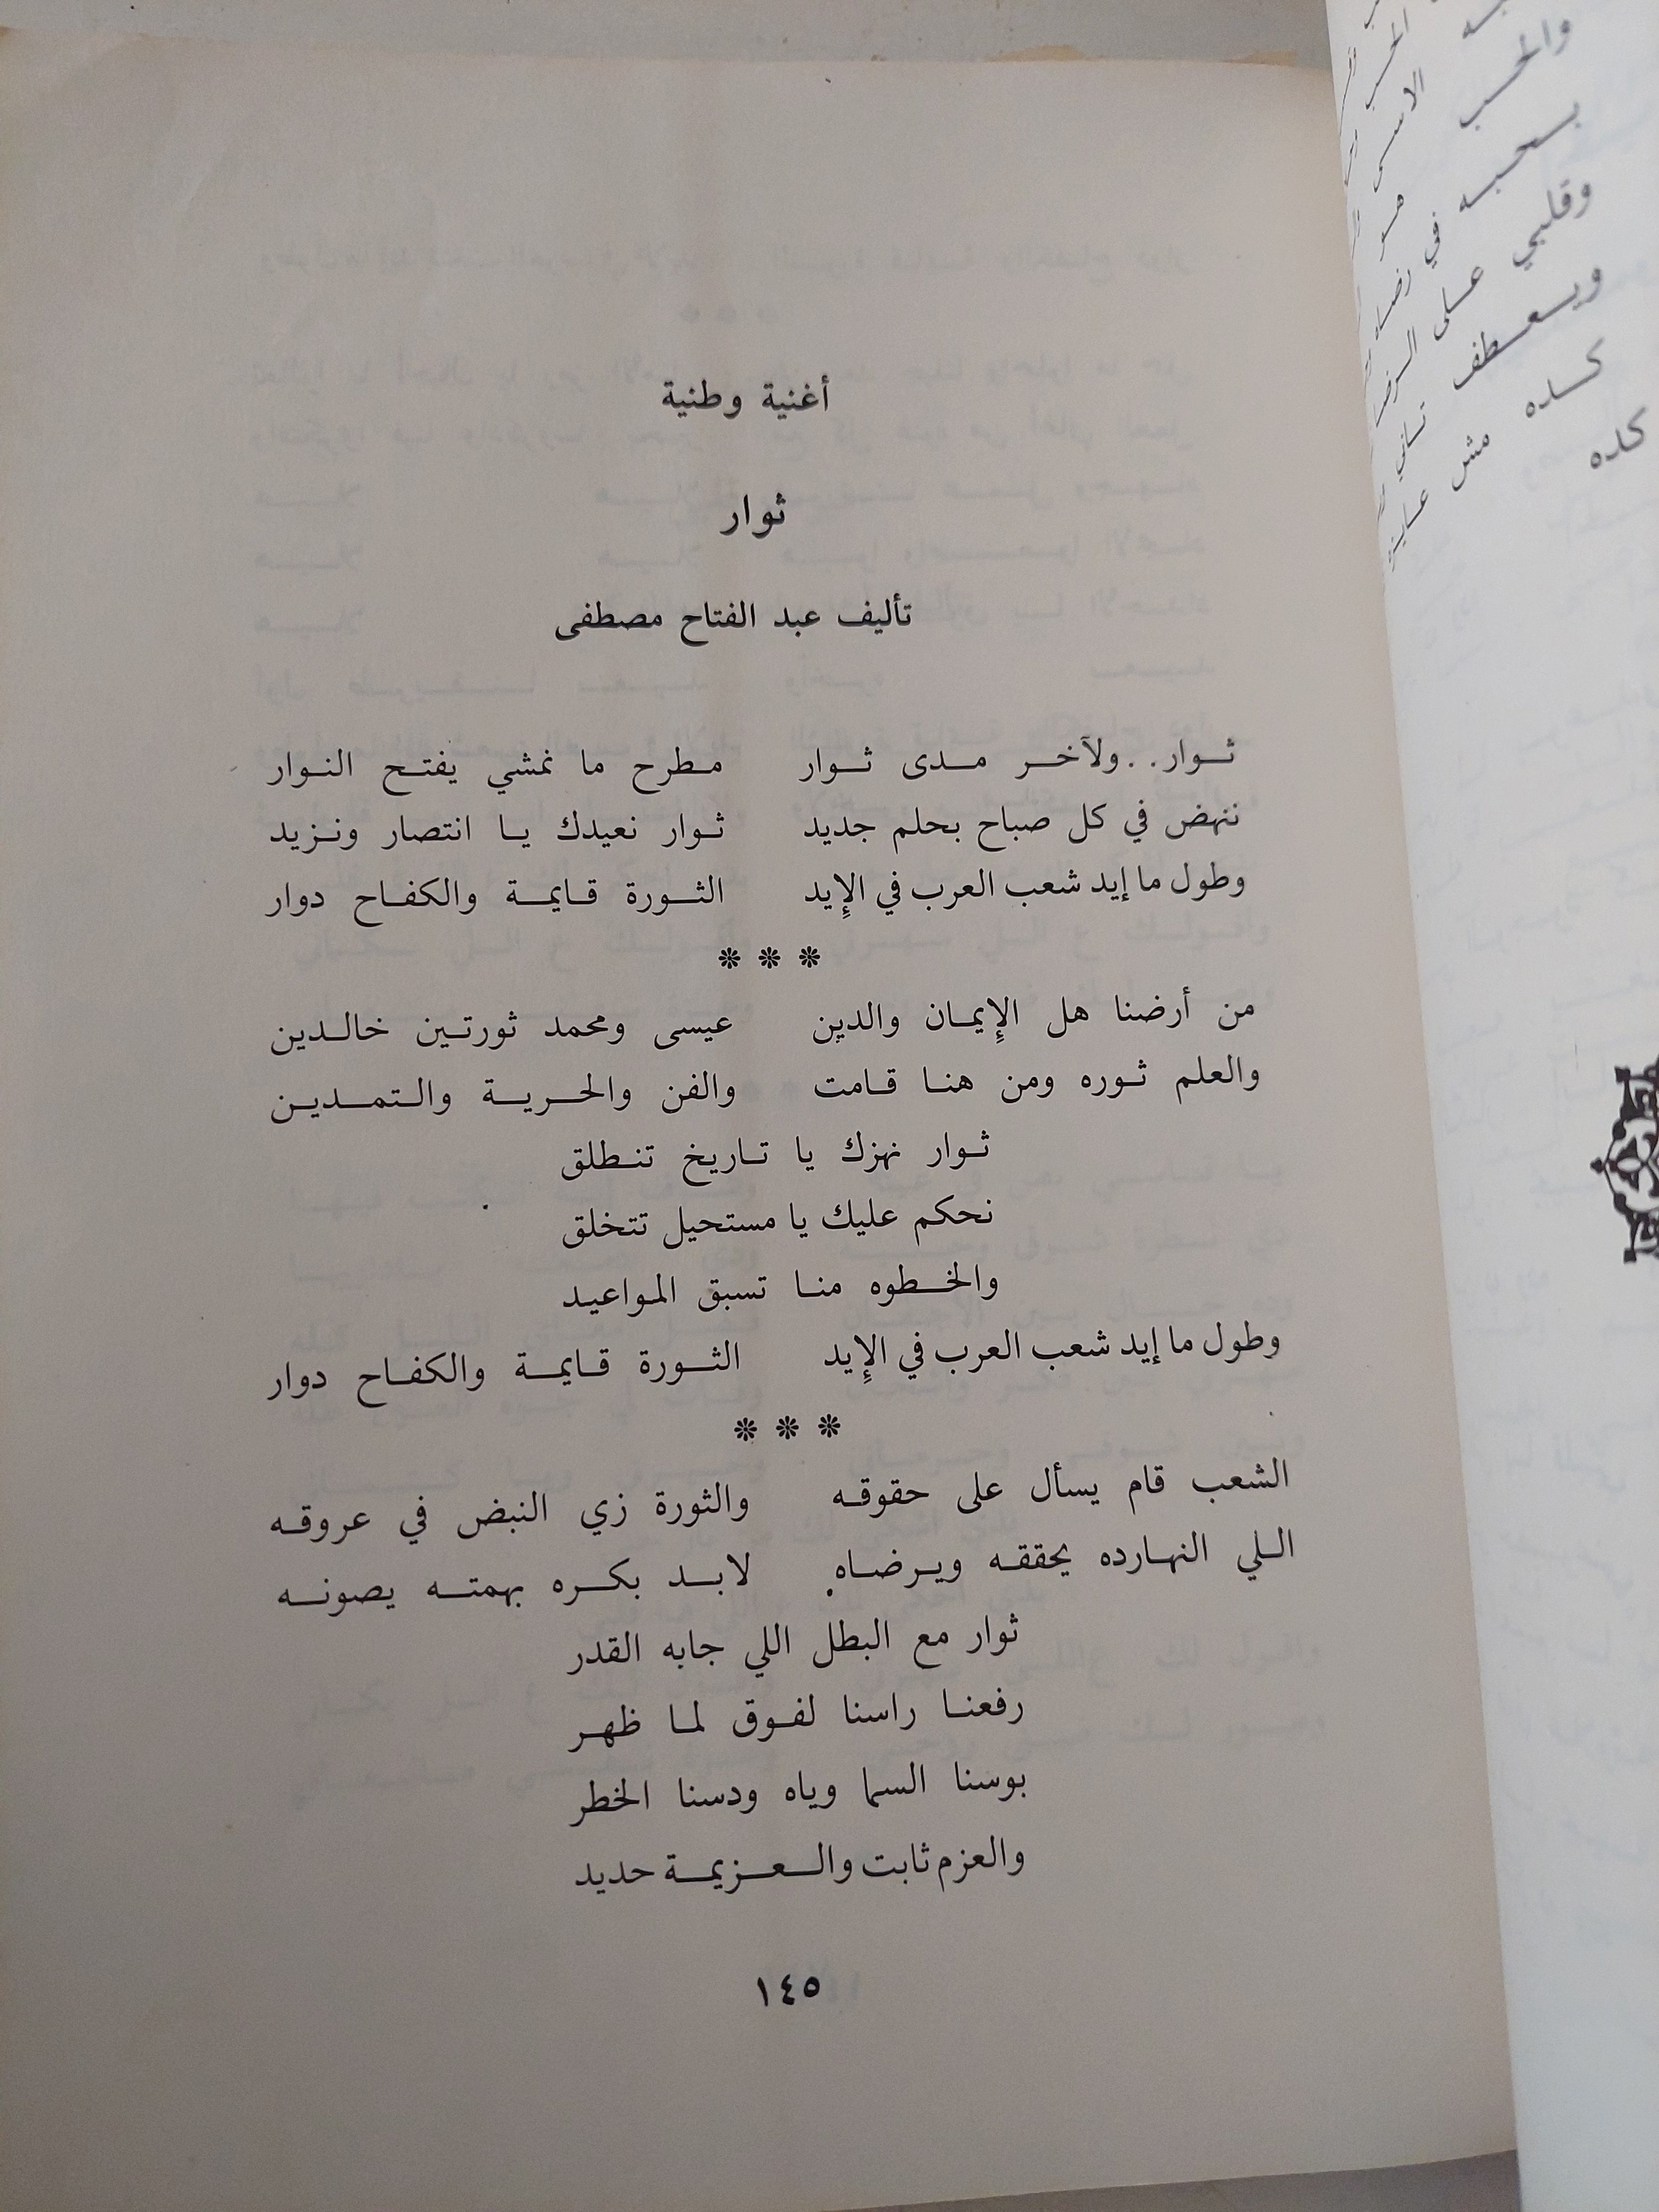 أغنية وطنية
ثوار
تأليف عبد الفتاح مصطفى
ثوار.. ولآخر مدى ثوار مطرح ما نمشي يفتح النوار
ننهض في كل صباح بحلم جديد ثوار نعيدك يا انتصار ونزيد
وطول ما إيد شعب العرب في الإيد الثورة قايمة والكفاح دوار
❊ ❊ ❊
من أرضنا هل الإيمان والدين عيسى ومحمد ثورتين خالدين
والعلم ثوره ومن هنا قامت والفن والحرية والتمدين
ثوار نهزك يا تاريخ تنطلق
نحكم عليك يا مستحيل تتخلق
والخطوه منا تسبق المواعيد
وطول ما إيد شعب العرب في الإيد الثورة قايمة والكفاح دوار
❊ ❊ ❊
الشعب قام يسأل على حقوقه والثورة زي النبض في عروقه
اللي النهارده يحققه ويرضاه لابد بكره بهمته يصونه
ثوار مع البطل اللي جابه القدر
رفعنا راسنا لفوق لما ظهر
بوسنا السما وياه ودسنا الخطر
والعزم ثابت والعزيمة حديد
١٤٥
والحب
بحبه في رضاه
وقلبي على الرضا
ويعطف تاني
كده مش عايز
كده